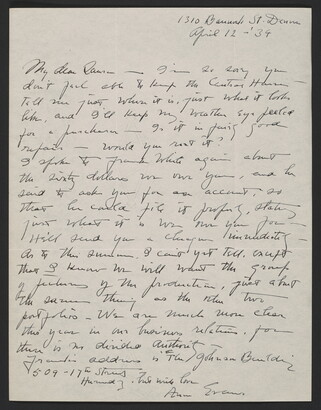 1310 Bannock St. Denver
April 12 - '39
My dear Laura — I'm so sorry you
don't feel able to keep the Central House —
Tell me just where it is, just what it looks
like, and I'll keep my weather eye peeled
for a purchaser — Is it in fairly good
repair — would you rent it?
I spoke to Frank White again about
the sixty dollars we owe you, and he
said to ask you for an account, so
that he could file it properly, stating
just what it is we owe you for —
He'll send you a cheque immediately —
As to this summer I can't yet tell, except
that I know we will want the group
of pictures of the production, just about
the same thing as the other two
portfolios — We are much more clear
this year in our business relations, for
there is no divided authority —
Frank's address is The Johnson Building
509 - 17th Street
Hurriedly, but with love
Ann Evans